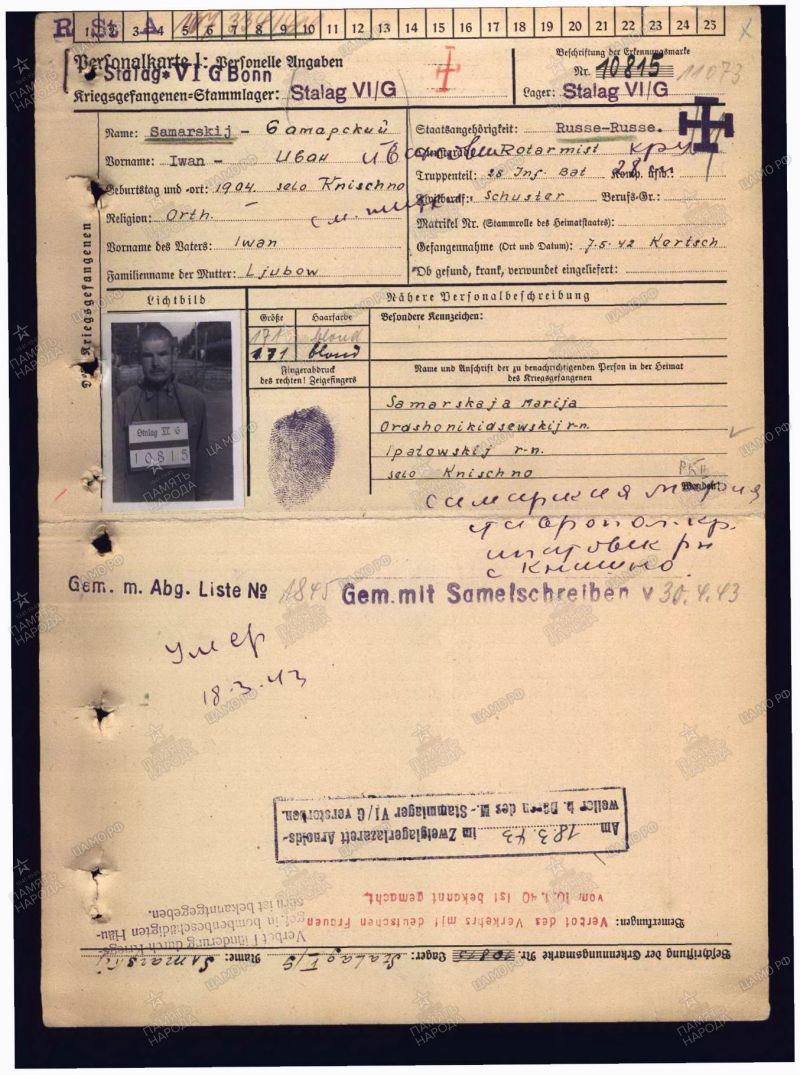 R St A
1 2 3 4 5 6 7 8 9 10 11 12 13 14 15 16 17 18 19 20 21 22 23 24 25
Personalkarte I: Personelle Angaben
Stalag VI G Bonn
Kriegsgefangenen-Stammlager: Stalag VI/G
Beschriftung der Erkennungsmarke
Nr. 10815 11073
Lager: Stalag VI/G
Des Kriegsgefangenen
Name: Samarskij – Самарский
Vorname: Iwan – Иван Иванович
Geburtstag und -ort: 1904. selo Knischno
Religion: Orth.
Vorname des Vaters: Iwan
Familienname der Mutter: Ljubow
Staatsangehörigkeit: Russe-Russe.
Dienstgrad: Rotarmist
Truppenteil: 28 Inf. Bat Komp. usw.:
Zivilberuf: Schuster Berufs-Gr.:
Matrikel Nr. (Stammrolle des Heimatstaates):
Gefangennahme (Ort und Datum): 7.5.42 Kertsch
Ob gesund, krank, verwundet eingeliefert:
Lichtbild
Stalag VI G
10815
Nähere Personalbeschreibung
Größe Haarfarbe
171 blond
1.71 blond
Fingerabdruck
des rechten! Zeigefingers
Besondere Kennzeichen:
Name und Anschrift der zu benachrichtigenden Person in der Heimat
des Kriegsgefangenen
Samarskaja Marija
Ordshonikidsewskij r-n.
Ipatowskij r-n.
selo Knischno
Wenden!
Самарская Мария
Ставропол. кр.
ипатовск рн
с Книшно.
Gem. m. Abg. Liste No 1845 Gem. mit Sametschreiben v 30.4.43
Умер
18.3.43
Am 18.3.43 im Zweiglagerlazarett Arnolds-
weiler b. Düren des M.-Stammlager VI/G verstorben.
Bemerkungen: Verbot des Verkehrs mit deutschen Frauen
vom 10.1.40 ist bekannt gemacht.
Verbot Plünderung durch Kriegs-
gef. in bombenbeschädigten Häu-
sern ist bekanntgegeben.
Beschriftung der Erkennungsmarke Nr. 10815 Lager: Stalag VI/G Name: Samarskij
ПАМЯТЬ НАРОДА
ЦАМО РФ